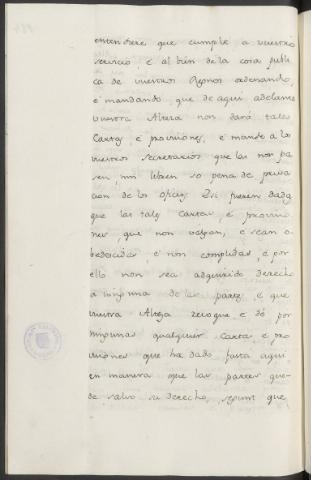 entendiere que cumple a vuestro
servicio, e al bien de la cosa publi
ca de vuestros Regnos ordenando,
e mandando, que de aqui adelante
vuestra Alteza non dará tales
Cartas, e provisiones, e mande a los
vuestros secretarios que las non pa
sen, nin libren so pena de priva
cion de los oficios. E si fueren dadas
que las tales Cartas, e provisio
nes, que non valgan, e sean o
bedecidas, e non complidas, e por
ello non sea adquirido derecho
a ninguna de las partes, e que
vuestra Alteza revoque, e dé por
ningunas qualquier Carta, e pro
visiones que ha dado fasta aqui
en manera que las partes que-
de salvo su derecho, segunt que,